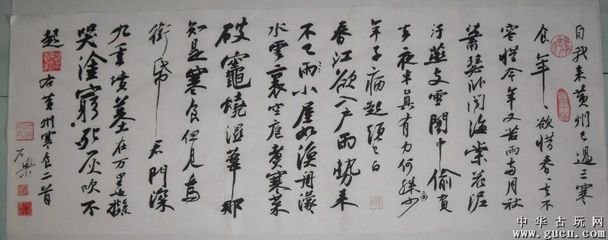 自我来黄州已過三寒
食年々欲惜春々去不
容惜今年又苦雨兩月秋
蕭瑟卧聞海棠花泥
汙燕支雪闇中偷負
去夜半真有力何殊少
年子病起頭已白
春江欲入户雨勢来
不已雨小屋如漁舟濛
水雲裏空庖煮寒菜
破竈燒溼葦那
知是寒食但見烏
銜帋君門深
九重墳墓在万里也擬
哭塗窮死灰吹不
起 右黄州寒食二首
中华古玩网
www.gucn.com